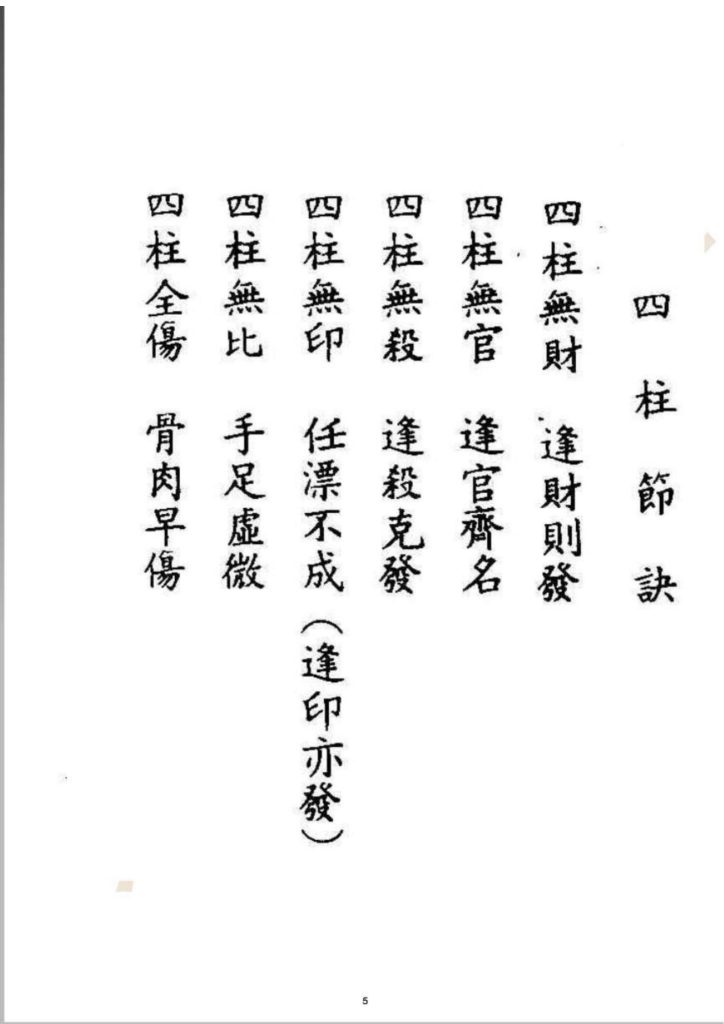 四柱節訣
四柱無財 逢財則發
四柱無官 逢官齊名
四柱無殺 逢殺克發
四柱無印 任漂不成（逢印亦發）
四柱無比 手足虛微
四柱全傷 骨肉早傷
5